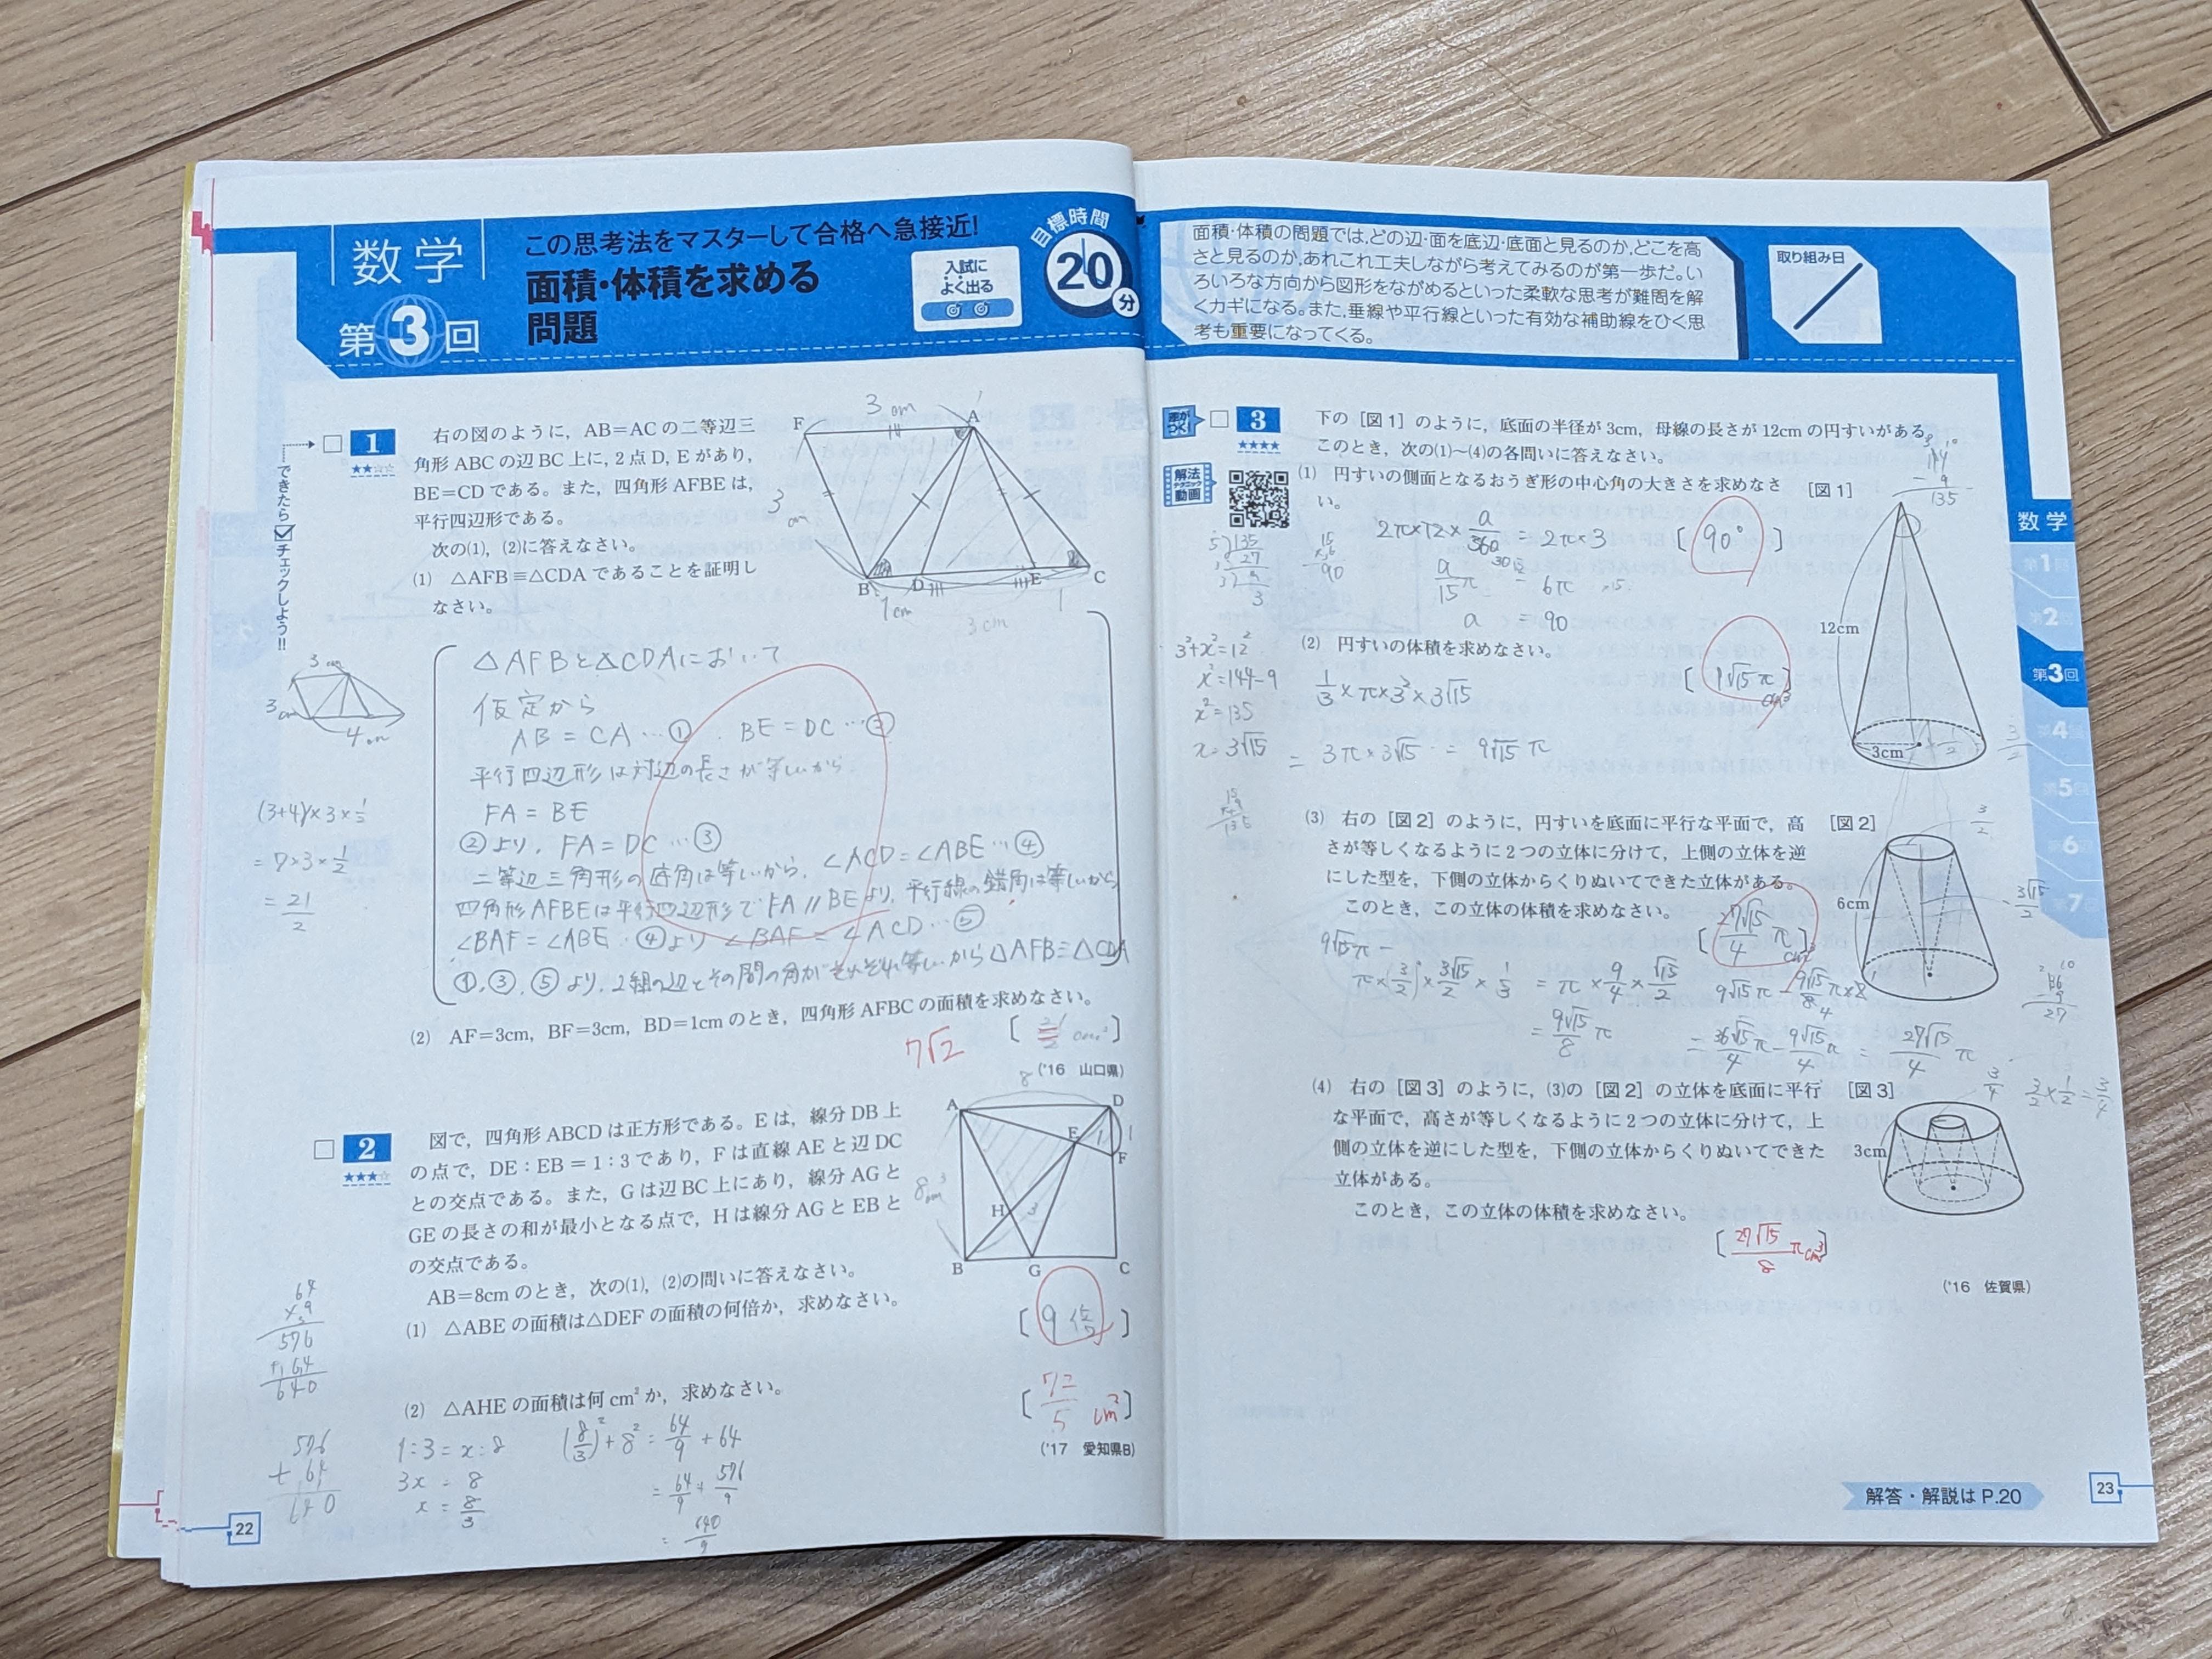 数学
第3回
この思考法をマスターして合格へ急接近!
面積・体積を求める
問題
入試に
よく出る
目標時間
20
分
できたら チェックしよう!!
1
右の図のように，AB=ACの二等辺三
角形ABCの辺BC上に，2点D，Eがあり，
BE=CDである。また，四角形AFBEは，
平行四辺形である。
次の⑴，⑵に答えなさい。
⑴ △AFB≡△CDAであることを証明し
なさい。
3cm
F
A
3
cm
B
D
E
C
1cm
3cm
1
△AFBと△CDAにおいて
仮定から
AB=CA…① BE=DC…②
平行四辺形は対辺の長さが等しいから
FA=BE
②より，FA=DC…③
二等辺三角形の底角は等しいから，∠ACD=∠ABE…④
四角形AFBEは平行四辺形でFA//BEより，平行線の錯角は等しいから
∠BAF=∠ABE ④より ∠BAF=∠ACD…⑤
①，③，⑤より，2組の辺とその間の角がそれぞれ等しいから△AFB≡△CDA
3cm
3cm
4cm
(3+4)×3×1/2
=7×3×1/2
=21/2
⑵ AF=3cm，BF=3cm，BD=1cmのとき，四角形AFBCの面積を求めなさい。
[21/2 cm²]
7√2
('16 山口県)
2
図で，四角形ABCDは正方形である。Eは，線分DB上
の点で，DE：EB＝1：3であり，Fは直線AEと辺DC
との交点である。また，Gは辺BC上にあり，線分AGと
GEの長さの和が最小となる点で，Hは線分AGとEBと
の交点である。
AB=8cmのとき，次の⑴，⑵の問いに答えなさい。
⑴ △ABEの面積は△DEFの面積の何倍か，求めなさい。
[9倍]
8
A
D
E
1
F
8cm
H
3
B
G
C
⑵ △AHEの面積は何cm²か，求めなさい。
[72/5 cm²]
('17 愛知県B)
64
×9
576
+64
640
576
+64
640
1:3=x:8
3x=8
x=8/3
(8/3)²+8²=64/9+64
=64/9+576/9
=640/9
22
面積・体積の問題では，どの辺・面を底辺・底面と見るのか，どこを高
さと見るのか，あれこれ工夫しながら考えてみるのが第一歩だ。い
ろいろな方向から図形をながめるといった柔軟な思考が難問を解
くカギになる。また，垂線や平行線といった有効な補助線をひく思
考も重要になってくる。
取り組み日
差がつく
3
解法
テクニック
動画
下の［図1］のように，底面の半径が3cm，母線の長さが12cmの円すいがある。
このとき，次の⑴～⑷の各問いに答えなさい。
⑴ 円すいの側面となるおうぎ形の中心角の大きさを求めなさ
い。
[90°]
2π×12×a/360=2π×3
a/15π=6π
a=90
5)135
27
3
15
×6
90
144
-9
135
［図1］
12cm
3cm
⑵ 円すいの体積を求めなさい。
[9√15π cm³]
3²+x²=12²
x²=144-9
x²=135
x=3√15
1/3×π×3²×3√15
=3π×3√15=9√15π
15
×9
135
3/2
⑶ 右の［図2］のように，円すいを底面に平行な平面で，高
さが等しくなるように2つの立体に分けて，上側の立体を逆
にした型を，下側の立体からくりぬいてできた立体がある。
このとき，この立体の体積を求めなさい。
[27√15/4 π cm³]
［図2］
6cm
3/2
3√15/2
9√15π-
π×(3/2)²×3√15/2×1/3=π×9/4×√15/2
=9√15/8 π
9√15π-9√15/8 π×8
=36√15/4 π-9√15/4 π=27√15/4 π
36
-9
27
⑷ 右の［図3］のように，⑶の［図2］の立体を底面に平行
な平面で，高さが等しくなるように2つの立体に分けて，上
側の立体を逆にした型を，下側の立体からくりぬいてできた
立体がある。
このとき，この立体の体積を求めなさい。
[27√15/8 π cm³]
［図3］
3cm
3/4
3/2×1/2=3/4
('16 佐賀県)
数学
第1回
第2回
第3回
第4回
第5回
第6回
第7回
解答・解説はP.20
23